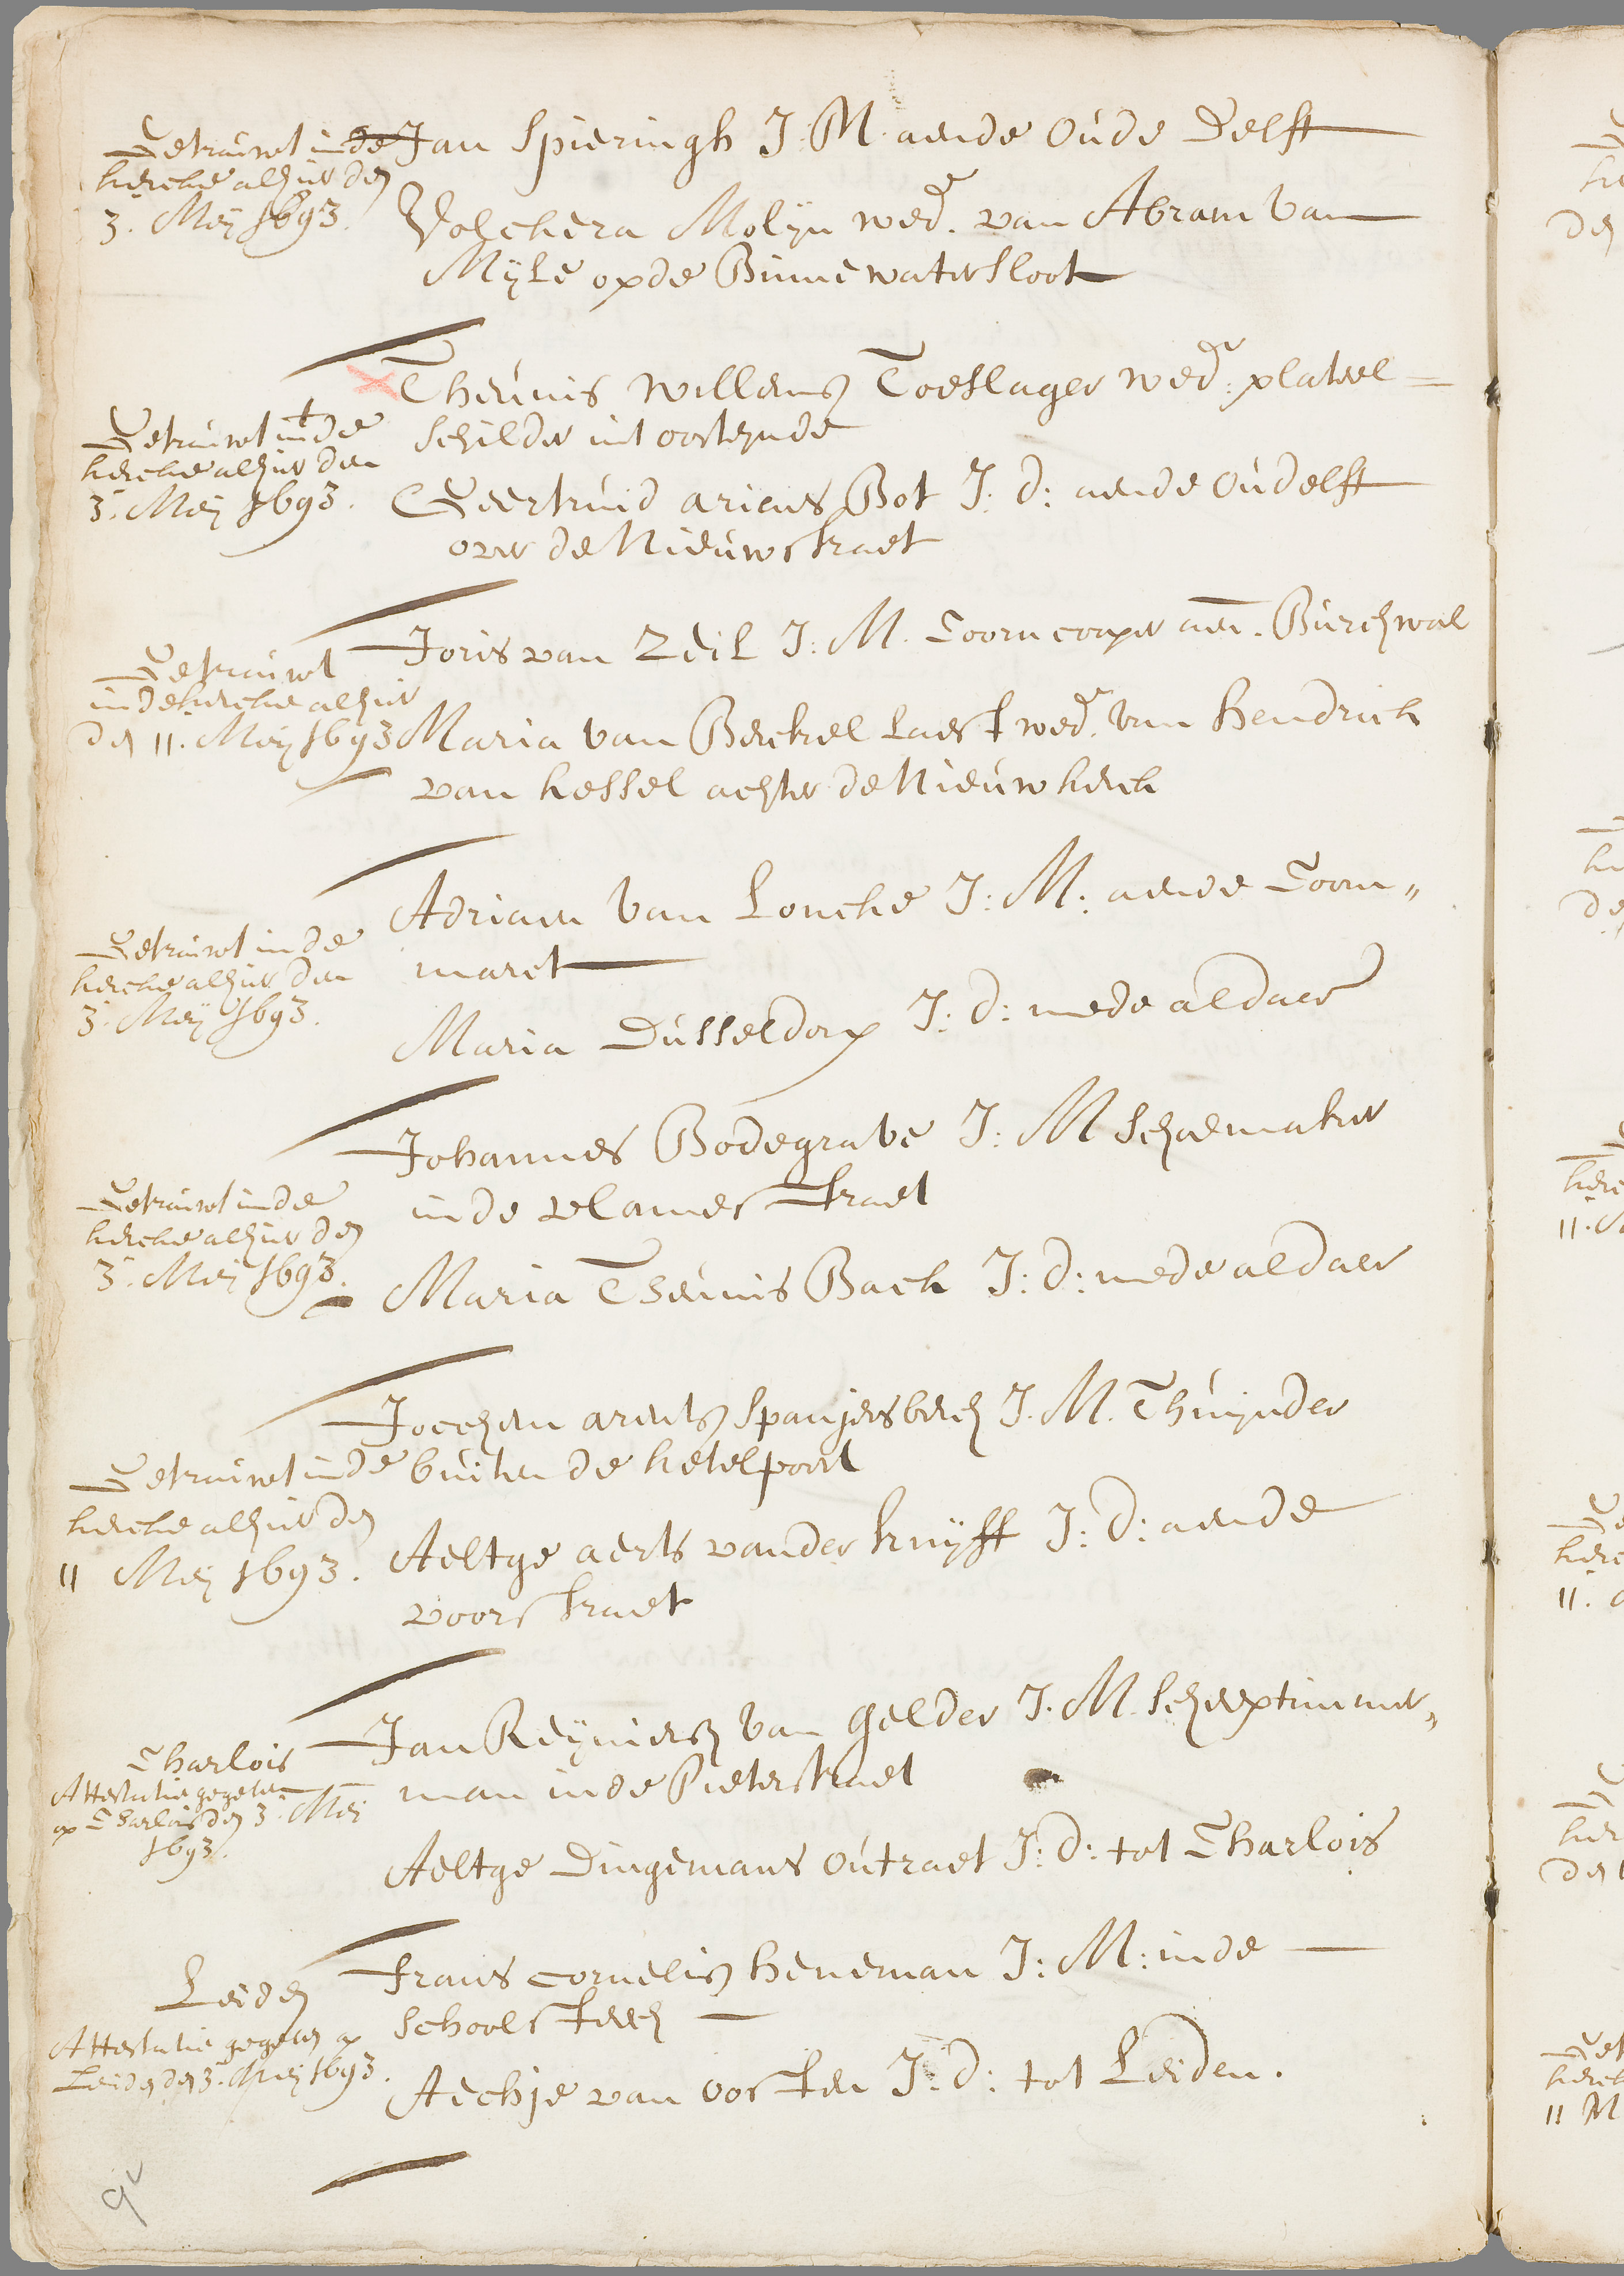 Getrouwt inde
kercke alhier den
3. Meij 1693.
Jan Spieringh J: M. aende Oude Delft
Volckera Molijn wed.e van Abram van
Mijle opde Binnewatersloot
Getrouwt inde
kercke alhier den
3. Meij 1693.
Theunis Willemsz Toeslager wed.r plateel=
schilder int oosteynde
Geertruid ariens Bot J: d: aende Oudelft
over de Nieuwstraet
Getrouwt
inde kercke alhier
den 11. Meij 1693
Joris van Zeil J: M. Coorncooper aen Burchwal
Maria van Berckel laest wed.e van Hendrick
van Kessel achter de Nieuwkerck
Getrouwt inde
kercke alhier den
3. Meij 1693.
Adriaen van Loncke J: M: aende Coorn„
marct
Maria Dusseldorp J: d: mede aldaer
Getrouwt inde
kercke alhier den
3. Meij 1693.
Johannes Bodegrave J: M Schoemaker
inde vlamestraet
Maria Theunis Back J: d: mede aldaer
Getrouwt inde
kercke alhier den
11 Meij 1693.
Jochem arentsz Spanjersberch J. M. Thuijnder
buiten de ketelpoort
Aeltge aerts vander kruijff J: d: aende
voorstraet
Charlois
Attestatie gegeven
op Charlois den 3. Meij
1693.
Jan Reijniersz van Gelder J. M. Scheeptimmer„
man inde Pieterstraet
Aeltge Dingemans Outraet J: d: tot Charlois
Leiden
Attestatie gegeven op
Leiden den 3. Meij 1693.
Frans cornelisz heneman J: M: inde
schoolsteech
Aechje van oosten J: d: tot Leiden.
9v